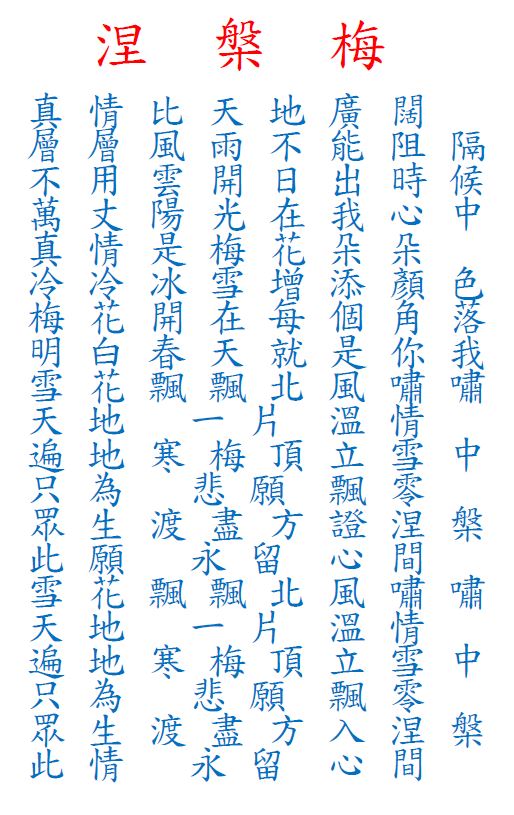 涅槃梅
真情比天地廣闊
層層風雨不能阻隔
不用雲開日出時候
萬丈陽光在我心中
真情是梅花朵朵
冷冷冰雪增添顏色
梅花開在每個角落
明白春天就是你我
雪花飄飄北風嘯嘯
天地一片溫情
遍地寒梅頂立雪中
只為悲願飄零
眾生渡盡方證涅槃
此願永留心間
雪花飄飄北風嘯嘯
天地一片溫情
遍地寒梅頂立雪中
只為悲願飄零
眾生渡盡方入涅槃
此情永留心間